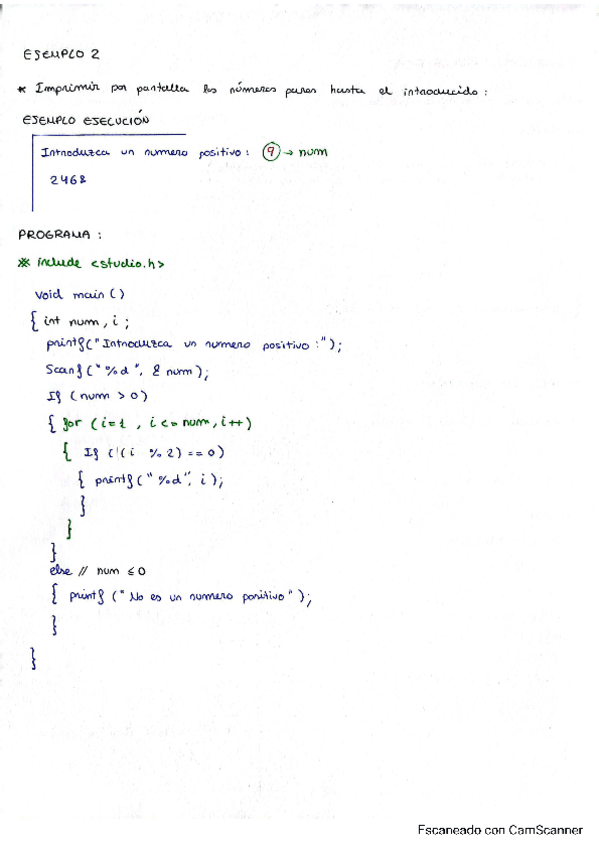 EJEMPLO 2
* Imprimir por pantalla los números pares hasta el introducido :
EJEMPLO EJECUCIÓN
Introduzca un numero positivo : 9 → num
2468
PROGRAMA :
* include <studio.h>
void main ()
{ int num, i ;
printf("Introduzca un numero positivo :");
Scanf ("%d", & num);
If (num > 0)
{ for (i=1 , i <= num, i++)
{ If ((i % 2) == 0)
{ printf ("%d", i);
}
}
}
else // num ≤ 0
{ printf ("No es un numero positivo");
}
}
Escaneado con CamScanner